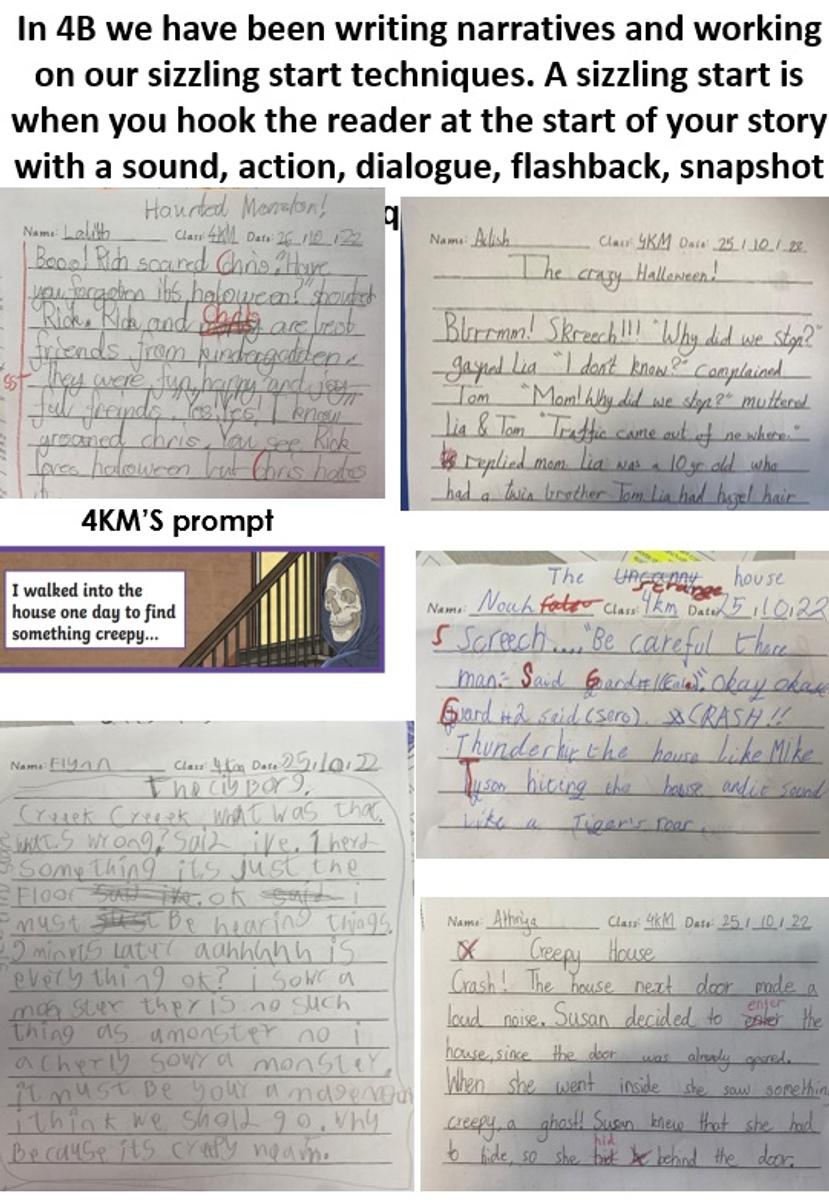 In 4B we have been writing narratives and working
on our sizzling start techniques. A sizzling start is
when you hook the reader at the start of your story
with a sound, action, dialogue, flashback, snapshot
q
Haunted Menston!
Name: Lalith Class: 4KM Date: 26/10/22
Booo! Rich scared Chris. "Have
you forgoten it's haloween?" shouted
Rick. Rick and Chris are best
friends from kindergadden.
they were fun, happy and joy
ful freinds. Yes, Yes! I know
groaned chris. You see Rick
loves haloween but Chris hates
it
Name: Adish Class: 4KM Date: 25/10/22
The crazy Halloween!
Blrrmm! Skreech!!! "Why did we stop?"
gasped Lia "I don't know?" Complained
Tom "Mom! Why did we stop?" muttered
Lia & Tom "Traffic came out of nowhere."
replied mom. Lia was a 10 yr old who
had a twin brother Tom. Lia had hazel hair
4KM'S prompt
I walked into the
house one day to find
something creepy...
The Uncanny strange house
Name: Noah Class: 4km Date: 25/10/22
S Screech.... "Be careful there
man:- Said Guard #1 okay okay
Guard #2 said (sero). CRASH!!
Thunder hit the house like Mike
Tyson hiting the house and it sound
like a Tiger's roar.
Name: Flynn Class: 4km Date: 25/10/22
The cyborg.
Creeek Creeek what was that.
whats wrong? Said ive. I herd
Something its just the
Floor said ive. ok said i
must just Be hearing things.
2 minets Later aahhhhh is
everything ok? i sowr a
monster ther is no such
thing as a monster no i
acherly sowr a monster.
it must Be your
i think we shold go. why
Because its creepy
Name: Athriya Class: 4KM Date: 25/10/22
Creepy House
Crash! The house next door made a
loud noise. Susan decided to enter the
house, since the door was already opened.
When she went inside she saw somethin
creepy, a ghost! Susan knew that she had
to hide, so she hid behind the door.